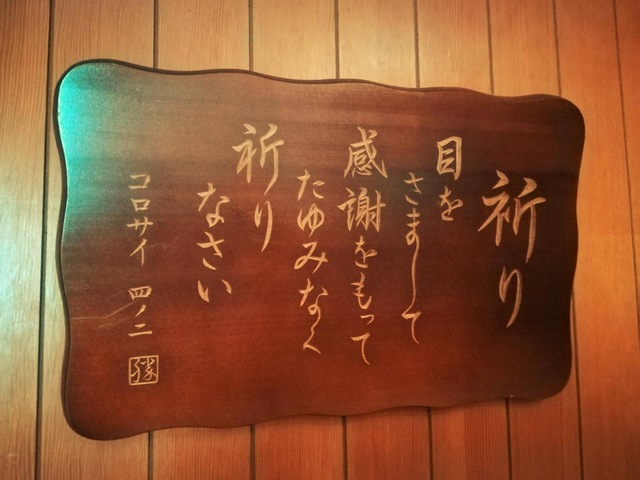 祈り
目を
さまして
感謝をもって
たゆみなく
祈り
なさい
コロサイ 四ノ二
勝